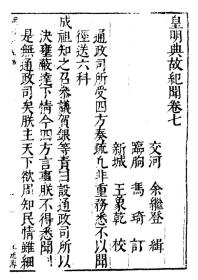 皇明典故紀聞卷七
交河 余繼登 輯
臨朐 馮琦 訂
新城 王象乾 校
通政司所受四方奏疏凡非重務悉不以聞
徑送六科
成祖知之召參議賀銀等責曰設通政司所以
決壅蔽達下情今四方言事朕不得悉聞則
是無通政司矣朕主天下欲周知民情雖細